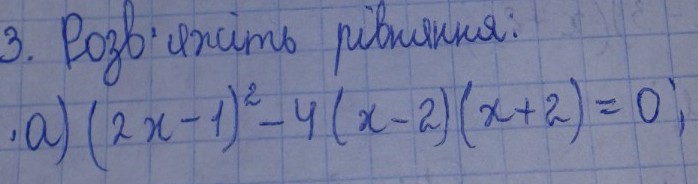 3. Розв'яжіть рівняння:
а) (2x-1)² - 4(x-2)(x+2) = 0;